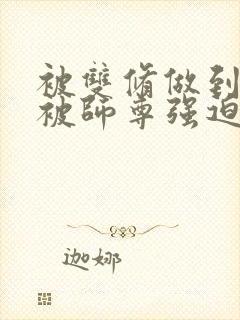 被雙脩做到
被師尊强迫
迦娜